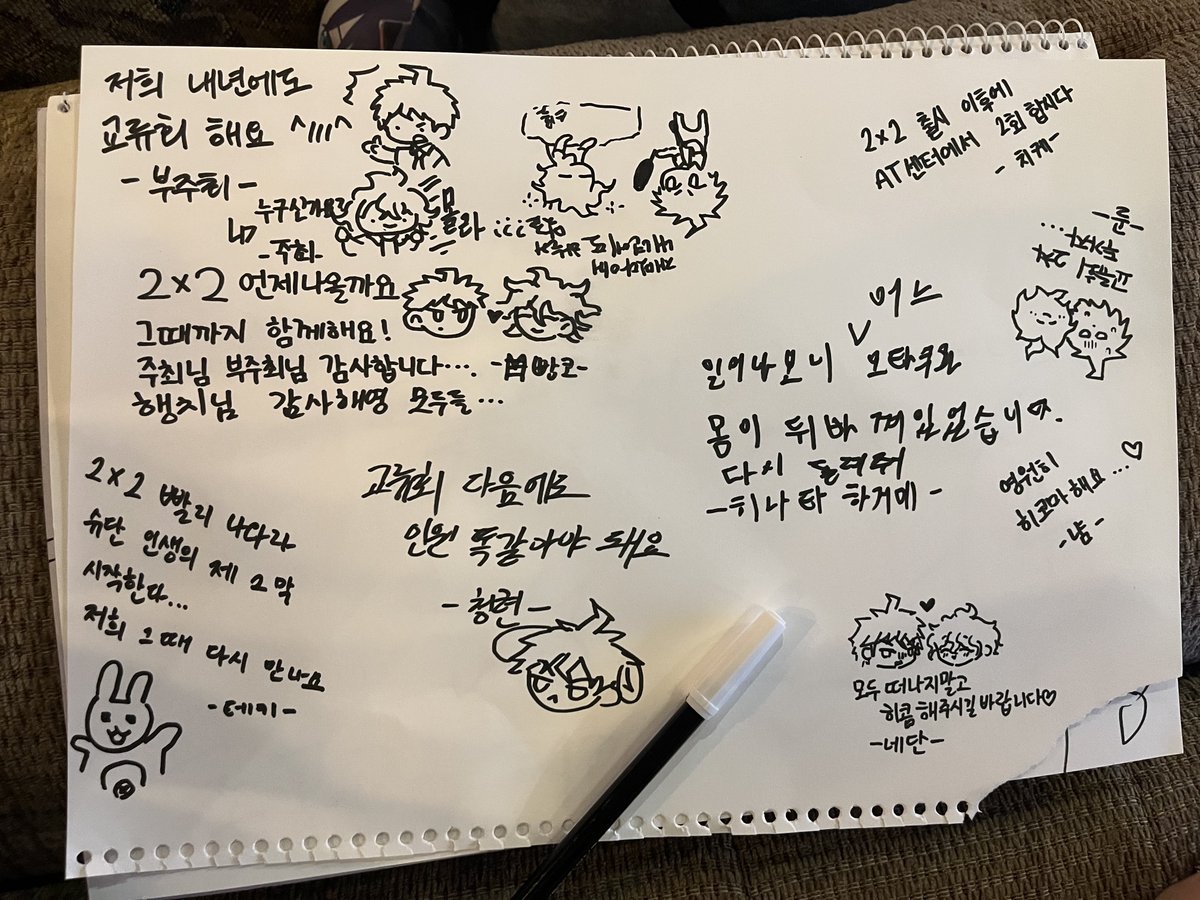 저희 내년에도
교류회 해요 ^///^
- 부주최 -
누구신가요
- 주최 -
몰라
2×2 언제나올까요
그때까지 함께해요!
주최님 부주최님 감사합니다....
- 빵코 -
행지님 감사해영 모두들...
2×2 출시 이후에
AT센터에서 2회 합시다
- 치케 -
- 룬 -
어느
일어나보니 ∨ 오타쿠와
몸이 뒤바껴있었습니다.
다시 돌려줘
- 히나타 하거메 -
영원히
히코마해요...♡
- 냠 -
2×2 빨리 나와라
슈단 인생의 제 2막
시작한다...
저희 그때 다시 만나요
- 테키 -
교류회 다음에도
인원 똑같아야 돼요
- 청현 -
모두 떠나지말고
히콤해주시길바랍니다♡
- 네단 -